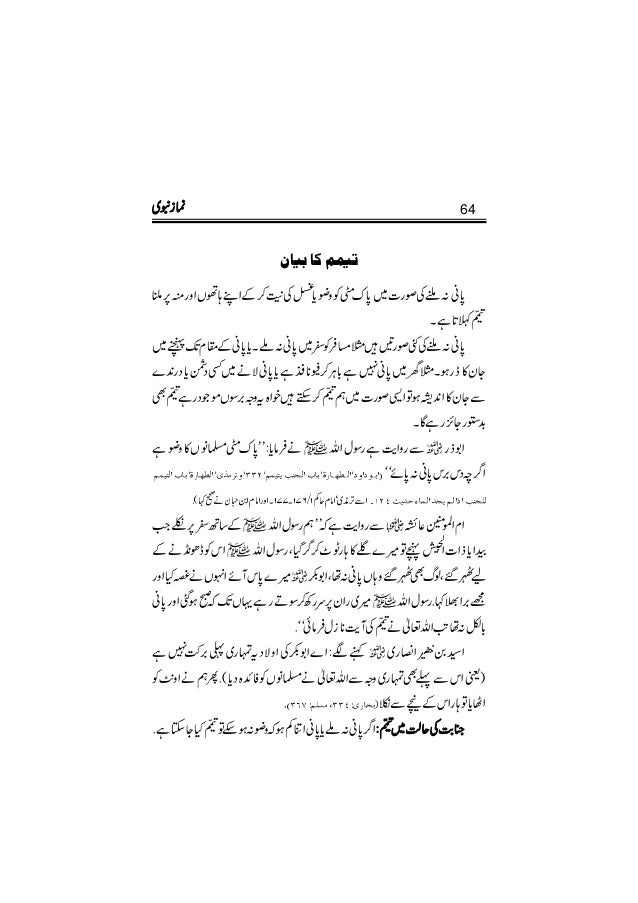 64 نماز نبوی
تیمم کا بیان
پانی نہ ملنے کی صورت میں پاک مٹی کو وضو یا غسل کی نیت کر کے اپنے ہاتھوں اور منہ پر ملنا
تیمّم کہلاتا ہے۔
پانی نہ ملنے کی کئی صورتیں ہیں مثلا مسافر کو سفر میں پانی نہ ملے۔ یا پانی کے مقام تک پہنچنے میں
جان کا ڈر ہو۔ مثلا گھر میں پانی نہیں ہے باہر کرفیو نافذ ہے یا پانی لانے میں کسی دشمن یا درندے
سے جان کا اندیشہ ہو تو ایسی صورت میں ہم تیمّم کر سکتے ہیں خواہ یہ وجہ برسوں موجود رہے تیمّم بھی
بدستور جائز رہے گا۔
ابوذر رضی اللہ عنہ سے روایت ہے رسول اللہ ﷺ نے فرمایا: ’’پاک مٹی مسلمانوں کا وضو ہے
اگرچہ دس برس پانی نہ پائے‘‘ (ابو داود' الطہارة' باب الجنب یتیمم' ۳۳۲' و ترمذی' الطہارة' باب التیمم
للجنب اذا لم یجد الماء حدیث ۱۲٤۔ اسے ترمذی' امام حاکم ۱/۱۷٦۔۱۷۷۔ اور امام ابن حبان نے صحیح کہا).
ام المؤمنین عائشہ رضی اللہ عنہا سے روایت ہے کہ ’’ہم رسول اللہ ﷺ کے ساتھ سفر پر نکلے جب
بیدا یا ذات الجیش پہنچے تو میرے گلے کا ہار ٹوٹ کر گر گیا، رسول اللہ ﷺ اس کو ڈھونڈنے کے
لیے ٹھہر گئے، لوگ بھی ٹھہر گئے وہاں پانی نہ تھا، ابوبکر رضی اللہ عنہ میرے پاس آئے انہوں نے غصہ کیا اور
مجھے برا بھلا کہا. رسول اللہ ﷺ میری ران پر سر رکھ کر سوتے رہے یہاں تک کہ صبح ہو گئی اور پانی
بالکل نہ تھا تب اللہ تعالی نے تیمّم کی آیت نازل فرمائی‘‘.
اسید بن حضیر انصاری رضی اللہ عنہ کہنے لگے: اے ابوبکر کی اولاد یہ تمہاری پہلی برکت نہیں ہے
(یعنی اس سے پہلے بھی تمہاری وجہ سے اللہ تعالیٰ نے مسلمانوں کو فائدہ دیا). پھر ہم نے اونٹ کو
اٹھایا تو ہار اس کے نیچے سے نکلا (بخاری: ۳۳٤، مسلم: ۳٦۷).
جنابت کی حالت میں تیمّم: اگر پانی نہ ملے یا پانی اتنا کم ہو کہ وضو نہ ہو سکے تو تیمّم کیا جا سکتا ہے.